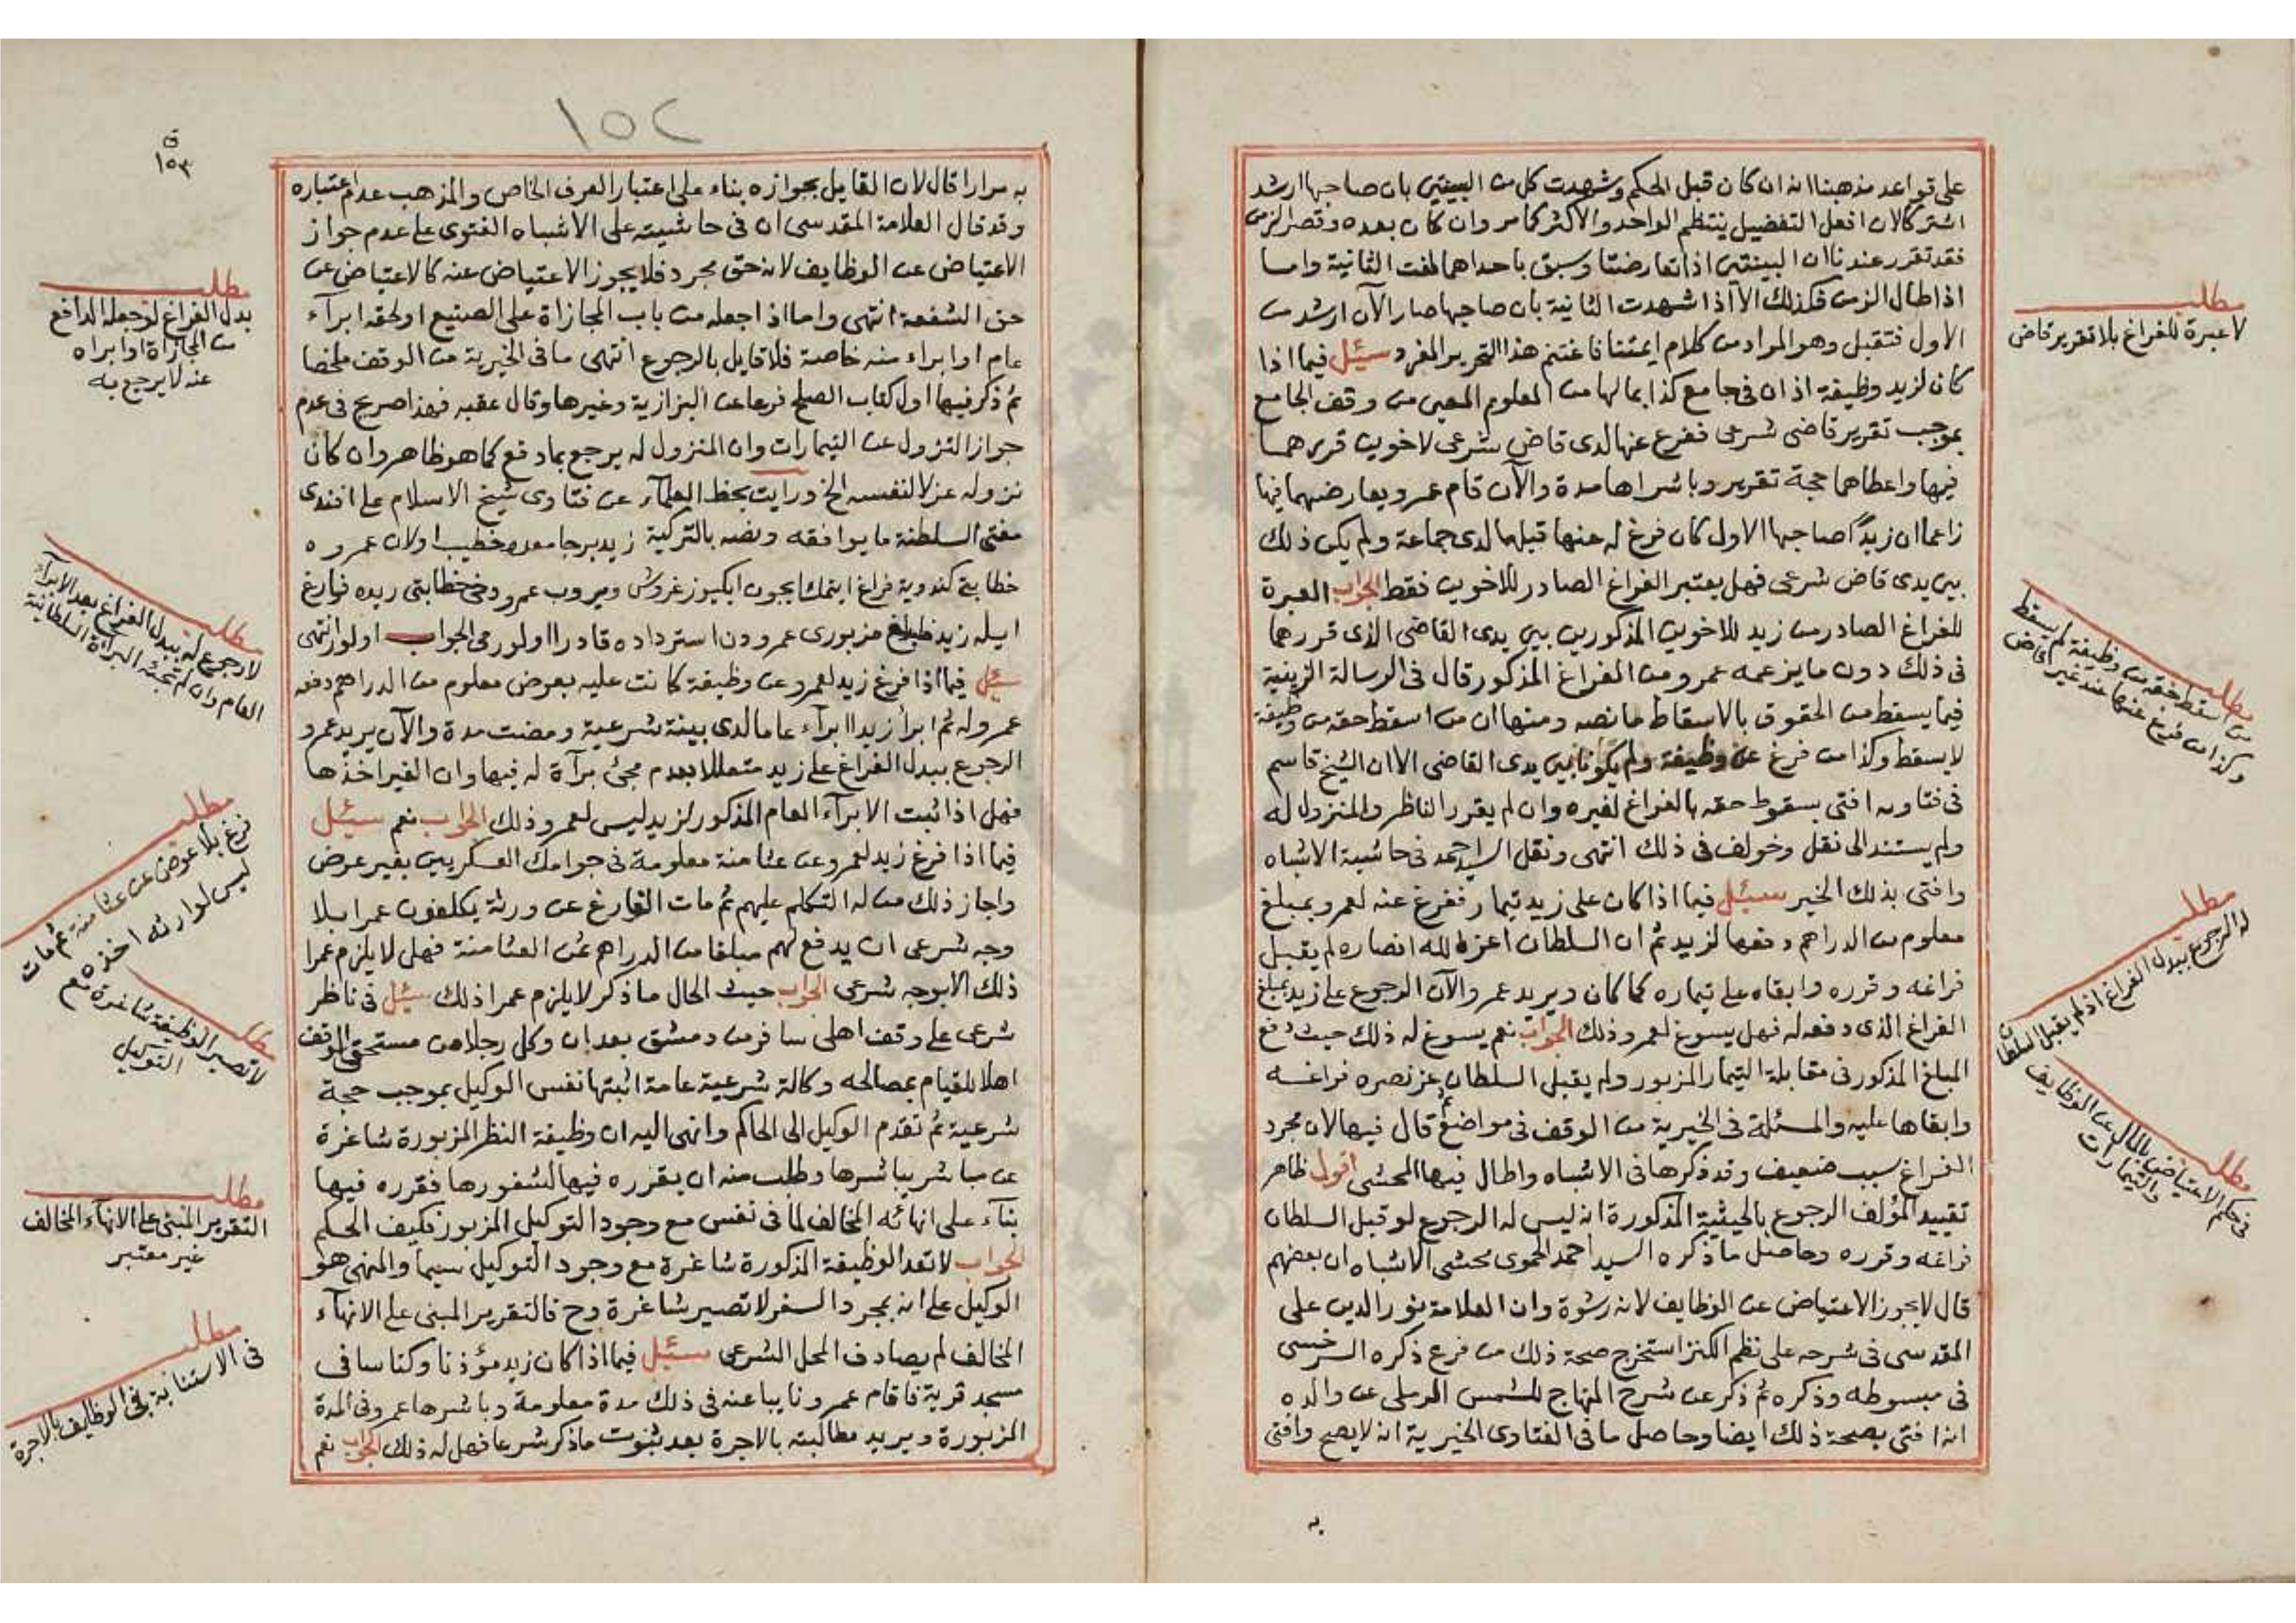 على قواعد مذهبنا انه ان كان قبل الحكم وشهدت كل من البينتين بان صاحبها ارشد
اشتركا لان افعل التفضيل ينتظم الواحد والاكثر كما مر وان كان بعده وقصر الزمن
فقد تقرر عندنا ان البينتين اذا تعارضتا وسبق باحداهما لغت الثانية واما
اذا طال الزمن فكذلك الا اذا شهدت الثانية بان صاحبها صار الآن ارشد من
الاول فتقبل وهو المراد من كلام ايمتنا فاغتنم هذا التحرير المفرد سئل فيما اذا
كان لزيد وظيفة اذان في جامع كذا بمالها من المعلوم المعين من وقف الجامع
بموجب تقرير قاضي شرعي ففرغ عنها لدى قاض شرعي لاخوين قررهما
فيها واعطاهما حجة تقرير وباشراها مدة والآن قام عمرو يعارضهما فيها
زاعما ان زيدا صاحبها الاول كان فرغ له عنها قبلهما لدى جماعة ولم يكن ذلك
بين يدى قاض شرعي فهل يعتبر الفراغ الصادر للاخوين فقط الجواب العبرة
للفراغ الصادر من زيد للاخوين المذكورين بين يدى القاضي الذى قررهما
في ذلك دون ما يزعمه عمرو من الفراغ المذكور قال في الرسالة الزينية
فيما يسقط من الحقوق بالاسقاط ما نصه ومنها ان من اسقط حقه من وظيفة
لا يسقط وكذا من فرغ عن وظيفة ولم يكونا بين يدى القاضي الا ان الشيخ قاسم
في فتاويه افتى بسقوط حقه بالفراغ لغيره وان لم يقرر الناظر والمنزول له
ولم يستند الى نقل وخولف في ذلك انتهى ونقل السيد احمد في حاشية الاشباه
وافتى بذلك الخير سئل فيما اذا كان على زيد تيمار ففرغ عنه لعمرو بمبلغ
معلوم من الدراهم دفعها لزيد ثم ان السلطان اعز الله انصاره لم يقبل
فراغه وقرره وابقاه على تيماره كما كان ويريد عمرو الآن الرجوع على زيد بمبلغ
الفراغ الذى دفعه له فهل يسوغ لعمرو ذلك الجواب نعم يسوغ له ذلك حيث دفع
المبلغ المذكور في مقابلة التيمار المزبور ولم يقبل السلطان عز نصره فراغه
وابقاها عليه والمسئلة في الخيرية من الوقف في مواضع قال فيها لان مجرد
الفراغ سبب ضعيف وقد ذكرها في الاشباه واطال فيها المحشى اقول ظاهر
تقييد المؤلف الرجوع بالحيثية المذكورة انه ليس له الرجوع لو قبل السلطان
فراغه وقرره وحاصل ما ذكره السيد احمد الحموى محشى الاشباه ان بعضهم
قال لا يجوز الاعتياض عن الوظايف لانه رشوة وان العلامة نور الدين على
المقدسى في شرحه على نظم الكنز استخرج صحة ذلك من فرع ذكره السرخسى
في مبسوطه وذكره ثم ذكر عن شرح المنهاج للشمس الرملى عن والده
انه افتى بصحة ذلك ايضا وحاصل ما في الفتاوى الخيرية انه لا يصح وافتى
به
مطلب
لا عبرة للفراغ بلا تقرير قاض
مطلب
من اسقط حقه من وظيفة لم يسقط
وكذا من فرغ عنها عند غير القاضي
مطلب
له الرجوع ببدل الفراغ اذا لم يقبل السلطان
مطلب
في حكم الاعتياض بالمال عن الوظايف
والتيمارات
١٥٢
١٥٣
به مرارا قال لان القايل بجوازه بناء على اعتبار العرف الخاص والمذهب عدم اعتباره
وقد قال العلامة المقدسى ان في حاشيته على الاشباه الفتوى على عدم جواز
الاعتياض عن الوظايف لانه حق مجرد فلا يجوز الاعتياض عنه كالاعتياض عن
حق الشفعة انتهى واما اذا جعله من باب المجازاة على الصنيع او لحقه ابرآء
عام او ابراء منه خاصة فلا قايل بالرجوع انتهى ما في الخيرية من الوقف ملخصا
ثم ذكر فيها اول كتاب الصلح فرعا عن البزازية وغيرها وقال عقبه فهذا صريح في عدم
جواز النزول عن التيمارات وان المنزول له يرجع بما دفع كما هو ظاهر وان كان
نزوله عزلا لنفسه الخ ورايت بخط العلمآء عن فتاوى شيخ الاسلام على افندى
مفتى السلطنة ما يوافقه ونصه بالتركية زيد برجامعده خطيب اولان عمروه
خطابتى كندويه فراغ ايتمك ايچون ايكيوز غروش ويروب عمرو دخى خطابتى زيده فارغ
ايله زيد مبلغ مزبورى عمرودن استرداده قادر اولورمى الجواب اولور انتهى
سئل فيما اذا فرغ زيد لعمرو عن وظيفة كانت عليه بعوض معلوم من الدراهم دفعه
عمرو له ثم ابرأ زيدا ابرآء عاما لدى بينة شرعية ومضت مدة والآن يريد عمرو
الرجوع ببدل الفراغ على زيد متعللا بعدم مجئ برآة له فيها وان الغير اخذها
فهل اذا ثبت الابرآء العام المذكور لزيد ليس لعمرو ذلك الجواب نعم سئل
فيما اذا فرغ زيد لعمرو عن عثامنة معلومة في جوامك العسكريين بغير عوض
واجاز ذلك من له التكلم عليهم ثم مات الفارغ عن ورثة يكلفون عمرا بلا
وجه شرعى ان يدفع لهم مبلغا من الدراهم عن العثامنة فهل لا يلزم عمرا
ذلك الا بوجه شرعى الجواب حيث الحال ما ذكر لا يلزم عمرا ذلك سئل في ناظر
شرعى على وقف اهلى سافر من دمشق بعد ان وكل رجلا من مستحقى الوقف
اهلا للقيام بمصالحه وكالة شرعية عامة اثبتها نفس الوكيل بموجب حجة
شرعية ثم تقدم الوكيل الى الحاكم وانهى اليه ان وظيفة النظر المزبورة شاغرة
عن مباشر يباشرها وطلب منه ان يقرره فيها لشغورها فقرره فيها
بنآء على انهائه المخالف لما في نفس مع وجود التوكيل المزبور فكيف الحكم
الجواب لا تعد الوظيفة المذكورة شاغرة مع وجود التوكيل سيما والمنهى هو
الوكيل على انه بمجرد السفر لا تصير شاغرة وح فالتقرير المبنى على الانهآء
المخالف لم يصادف المحل الشرعى سئل فيما اذا كان زيد مؤذنا وكناسا في
مسجد قرية فاقام عمرو نايبا عنه في ذلك مدة معلومة وباشرها عمرو في المدة
المزبورة ويريد مطالبته بالاجرة بعد ثبوت ما ذكر شرعا فهل له ذلك الجواب نعم
مطلب
بدل الفراغ لو جعله الدافع
من المجازاة او ابراه
عنه لا يرجع به
مطلب
لا رجوع له ببدل الفراغ بعد الابرآء
العام وان لم تجئه البرآة السلطانية
مطلب
فرغ بلا عوض عن عثامنة ثم مات
ليس لوارثه اخذه
مطلب
لا تصير الوظيفة شاغرة مع
التوكيل
مطلب
التقرير المبنى على الانهآء المخالف
غير معتبر
مطلب
في الاستنابة في الوظايف بالاجرة